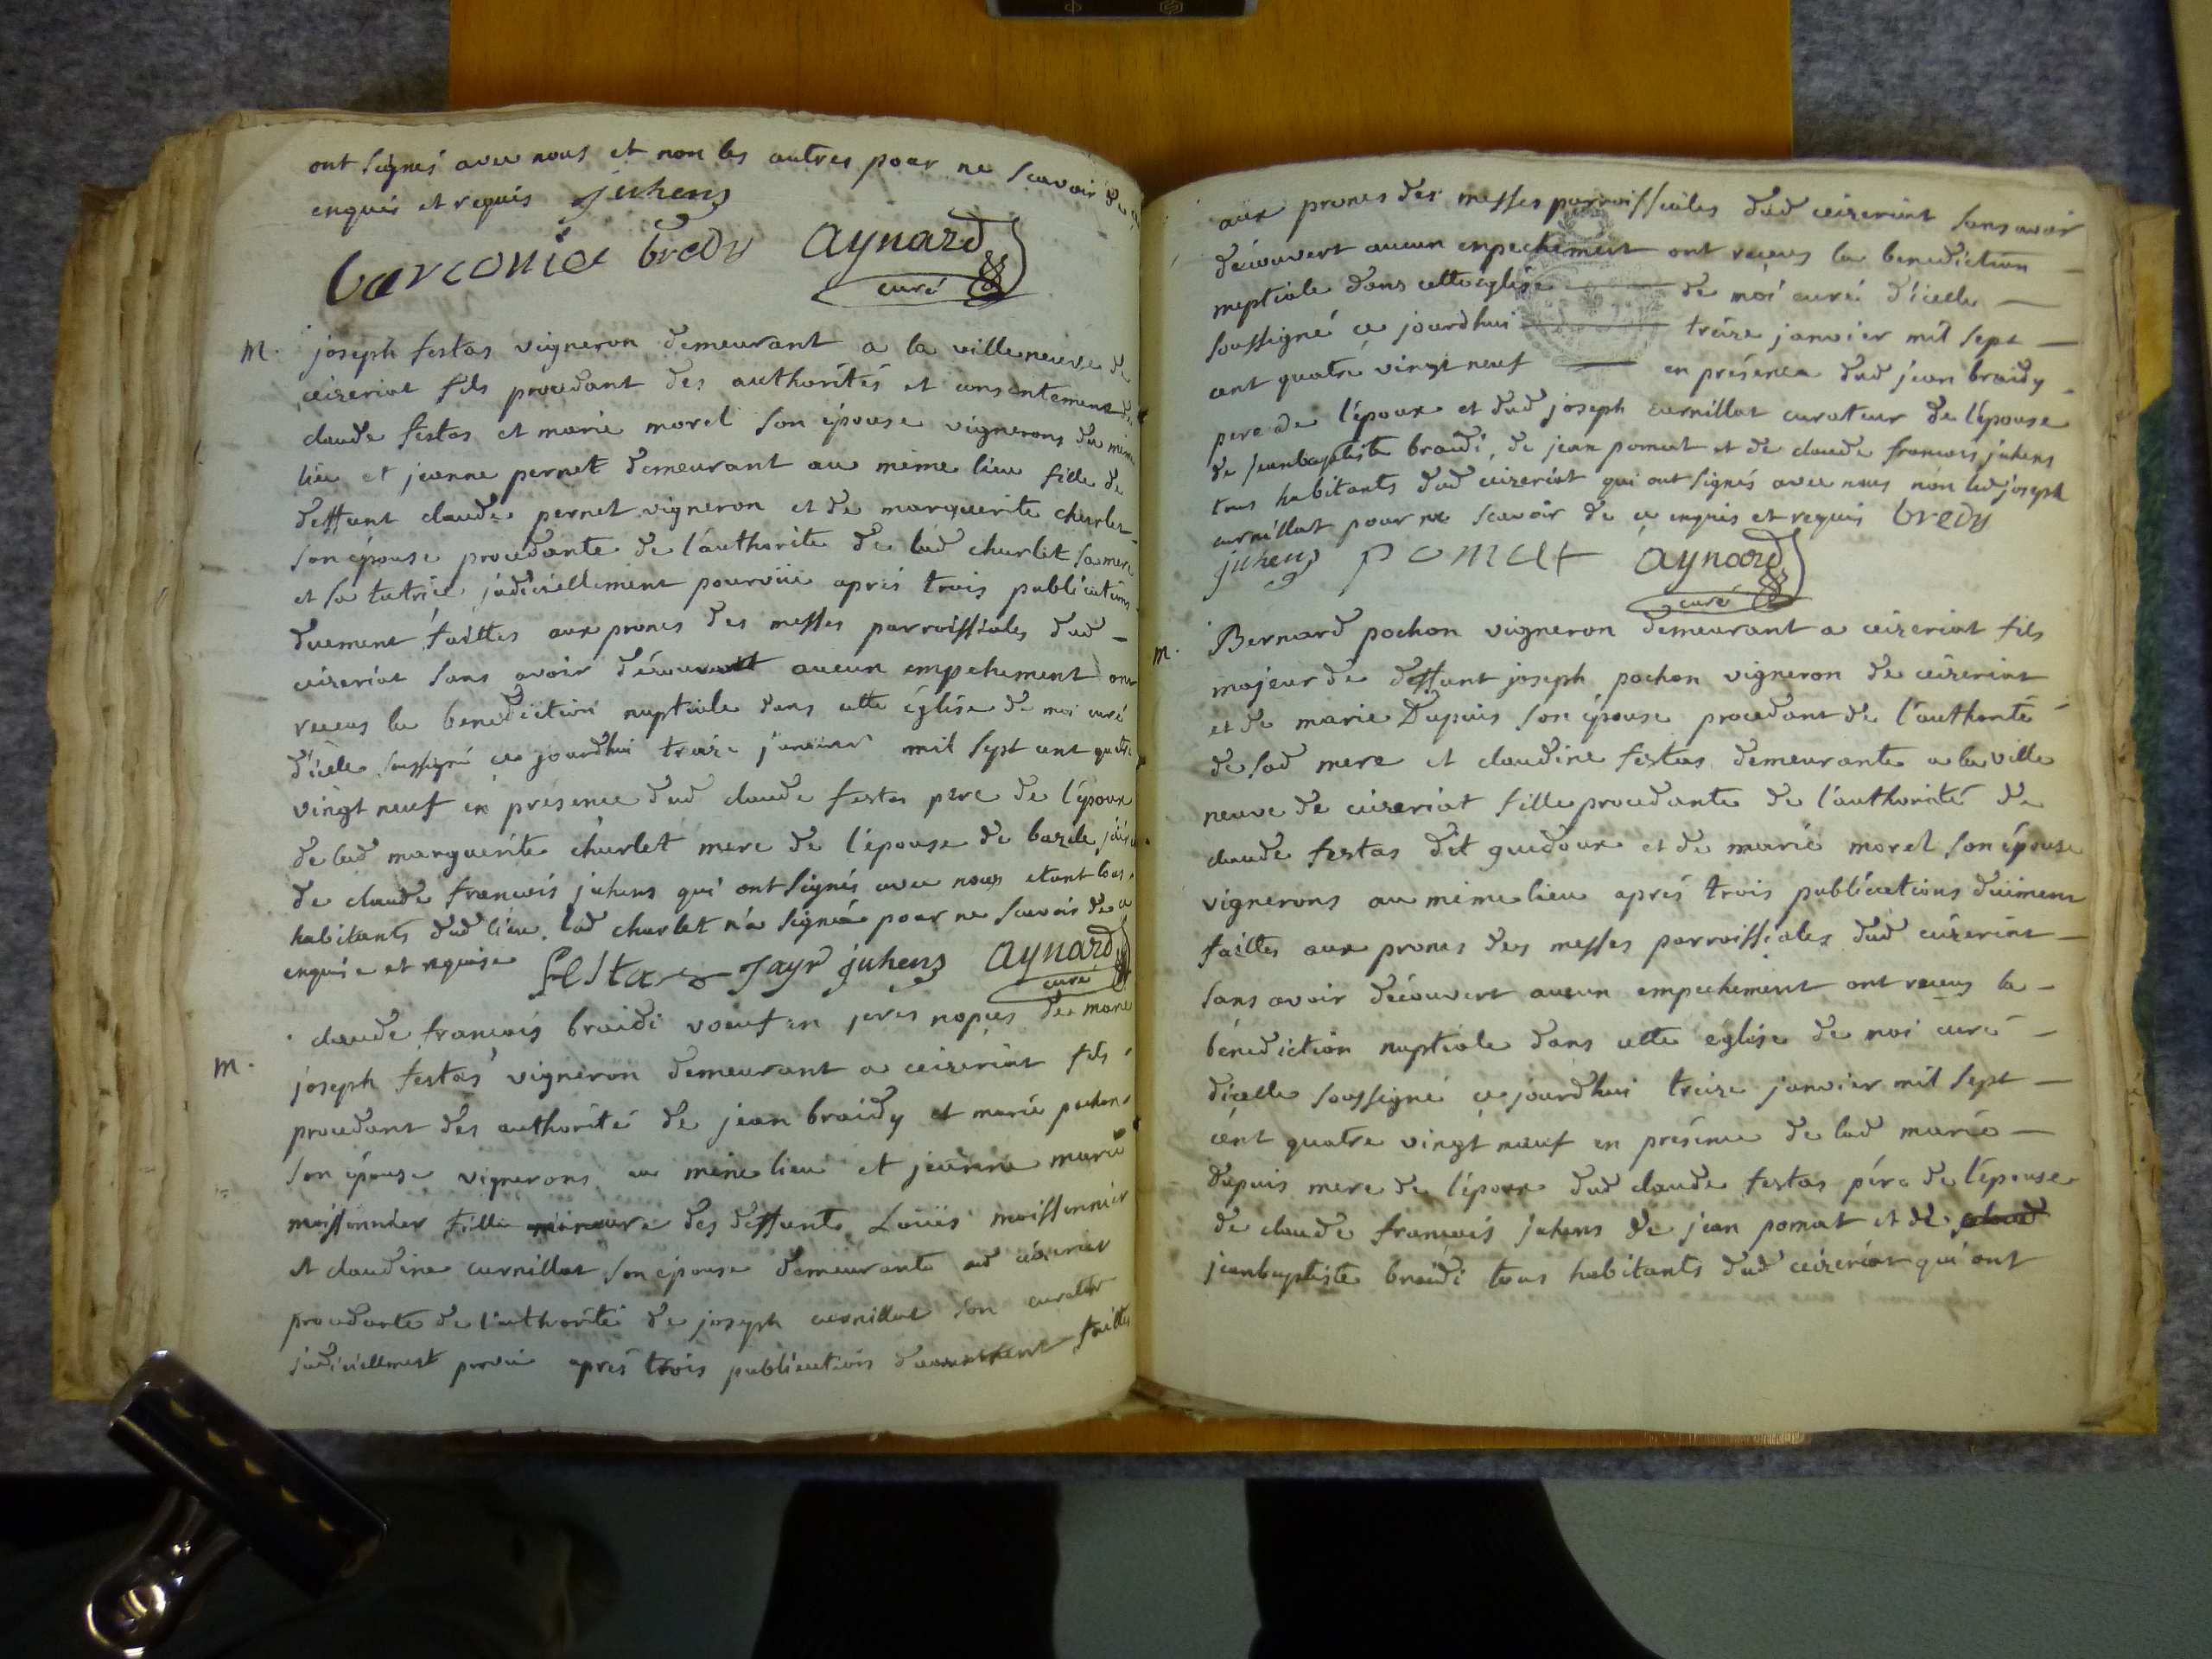 ont signés avec nous et non les autres pour ne scavoir de ce
enquis et requis juhens
barconia bredy aynard
curé
M. joseph festas vigneron demeurant a la villeneuve de
ceizeriat fils procedant des authorités et consentement de
claude festas et marie morel son épouse vignerons du mème
lieu et jeanne pernet demeurant au mème lieu fille de
deffunt claude pernet vigneron et de marguerite churlet
son épouse procedante de l'authorite de lad churlet sa mere
et sa tutrice judiciellement pourvüe aprés trois publications
duement faittes aux prones des messes parroissiales dud
ceizeriat sans avoir découvert aucun empechement ont
receus la benediction nuptiale dans cette église de moi curé
d'icelle soussigné ce jourdhui treize janvier mil sept cent quatre
vingt neuf en présence dud claude festas pere de l'époux
de lad marguerite churlet mere de l'épouse de bazile
de claude francois juhens qui ont signés avec nous etant tous
habitants dud lieu. lad churlet n'a signée pour ne scavoir de ce
enquise et requise festas Jayr juhens aynard
curé
M. claude francois braidi voeuf en 1eres nopces de marie
joseph festas vigneron demeurant a ceizeriat fils
procedant des authorité de jean braidy et marie pochon
son épouse vignerons au mème lieu et jeanne marie
moissonnier fille mineure des deffunts Louis moissonnier
et claudine curnillat son épouse demeurante aud ceizeriat
procedante de l'authorité de joseph curnillat son curateur
judiciellement pourvu aprés trois publications duement faittes
aux prones des messes parroissiales dud ceizeriat sans avoir
découvert aucun empechement ont receus la benediction
nuptiale dans cette église de moi curé d'icelle
soussigné ce jourdhui treize janvier mil sept
cent quatre vingt neuf en présence dud jean braidy
pere de l'époux et dud joseph curnillat curateur de l'épouse
de jeanbaptiste braidi, de jean pomat et de claude francois juhens
tous habitants dud ceizeriat qui ont signés avec nous non led joseph
curnillat pour ne scavoir de ce enquis et requis bredy
juhens pomat aynard
curé
M. Bernard pochon vigneron demeurant a ceizeriat fils
majeur de deffunt joseph pochon vigneron de ceizeriat
et de marie Dupuis son épouse procedant de l'authorité
de sad mere et claudine festas demeurante a la ville
neuve de ceizeriat fille procedante de l'authorité de
claude festas dit guidoux et de marie morel son épouse
vignerons au mème lieu aprés trois publications duiment
faittes aux prones des messes parroissiales dud ceizeriat
sans avoir découvert aucun empechement ont receus la
bénediction nuptiale dans cette église de moi curé
d'icelle soussigné ce jourdhui treize janvier mil sept
cent quatre vingt neuf en présence de lad marie
Dupuis mere de l'époux dud claude festas pére de l'épouse
de claude francois juhens de jean pomat et de
jeanbaptiste braidi tous habitants dud ceizeriat qui ont